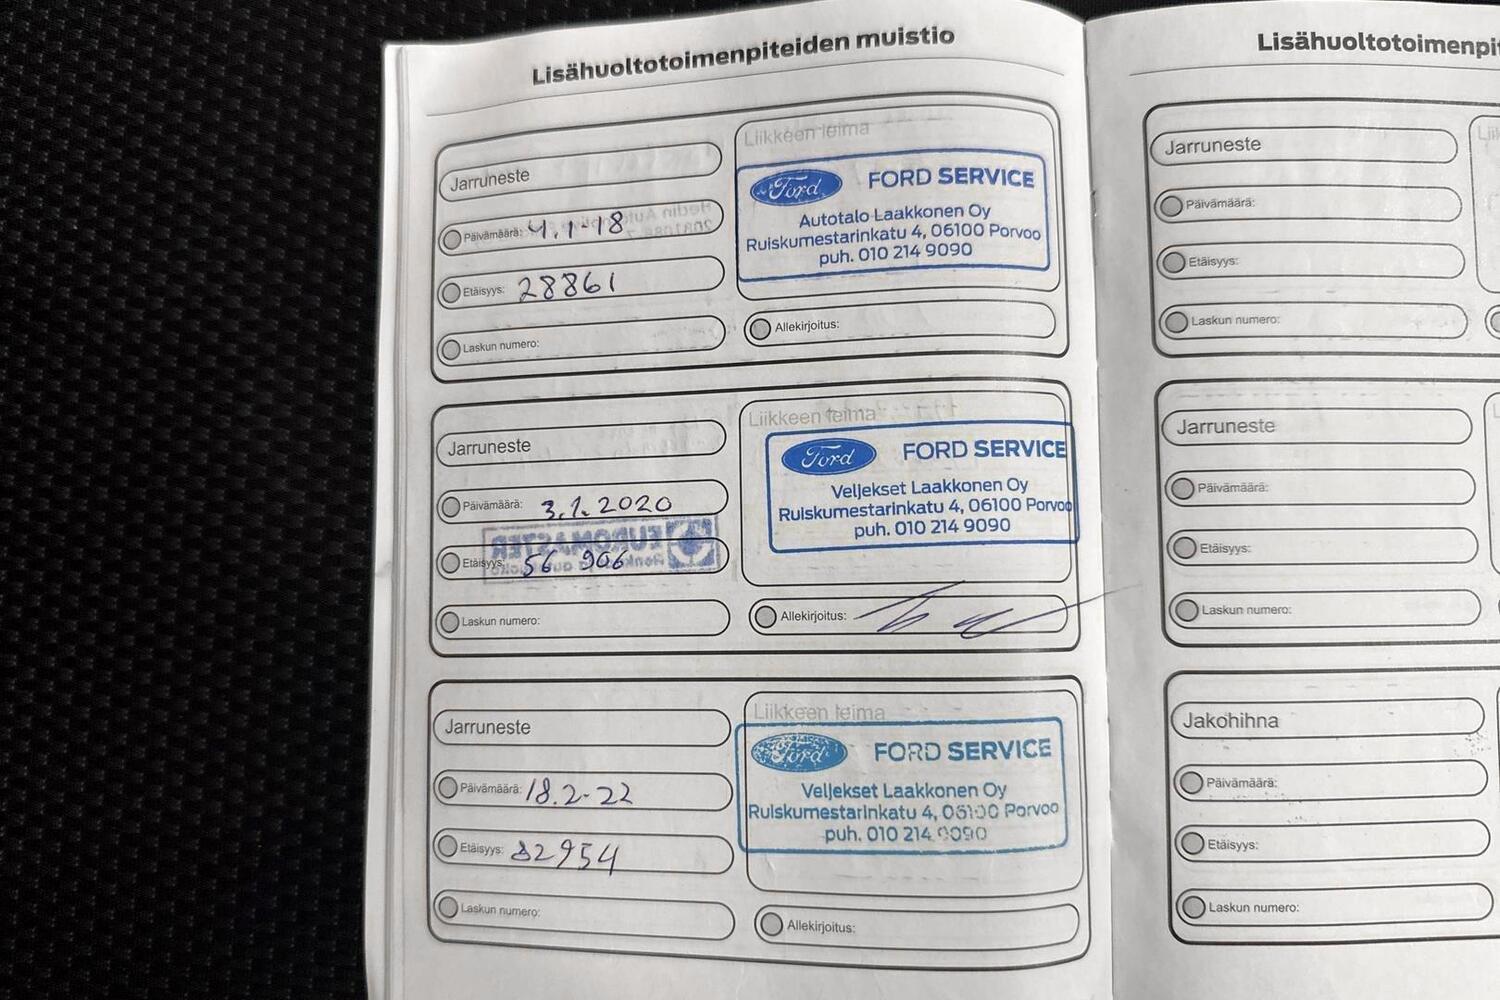 Lisähuoltotoimenpiteiden muistio
Jarruneste
Päivämäärä: 4.1-18
Etäisyys: 28861
Laskun numero:
Liikkeen leima
Ford FORD SERVICE
Autotalo Laakkonen Oy
Ruiskumestarinkatu 4, 06100 Porvoo
puh. 010 214 9090
Allekirjoitus:
Jarruneste
Päivämäärä: 3.1.2020
EUROMASTER
Etäisyys: 56 906
Laskun numero:
Liikkeen leima
Ford FORD SERVICE
Veljekset Laakkonen Oy
Ruiskumestarinkatu 4, 06100 Porvoo
puh. 010 214 9090
Allekirjoitus:
Jarruneste
Päivämäärä: 18.2-22
Etäisyys: 82954
Laskun numero:
Liikkeen leima
Ford FORD SERVICE
Veljekset Laakkonen Oy
Ruiskumestarinkatu 4, 06100 Porvoo
puh. 010 214 9090
Allekirjoitus:
Lisähuoltotoimenpit
Jarruneste
Päivämäärä:
Etäisyys:
Laskun numero:
Jarruneste
Päivämäärä:
Etäisyys:
Laskun numero:
Jakohihna
Päivämäärä:
Etäisyys:
Laskun numero: